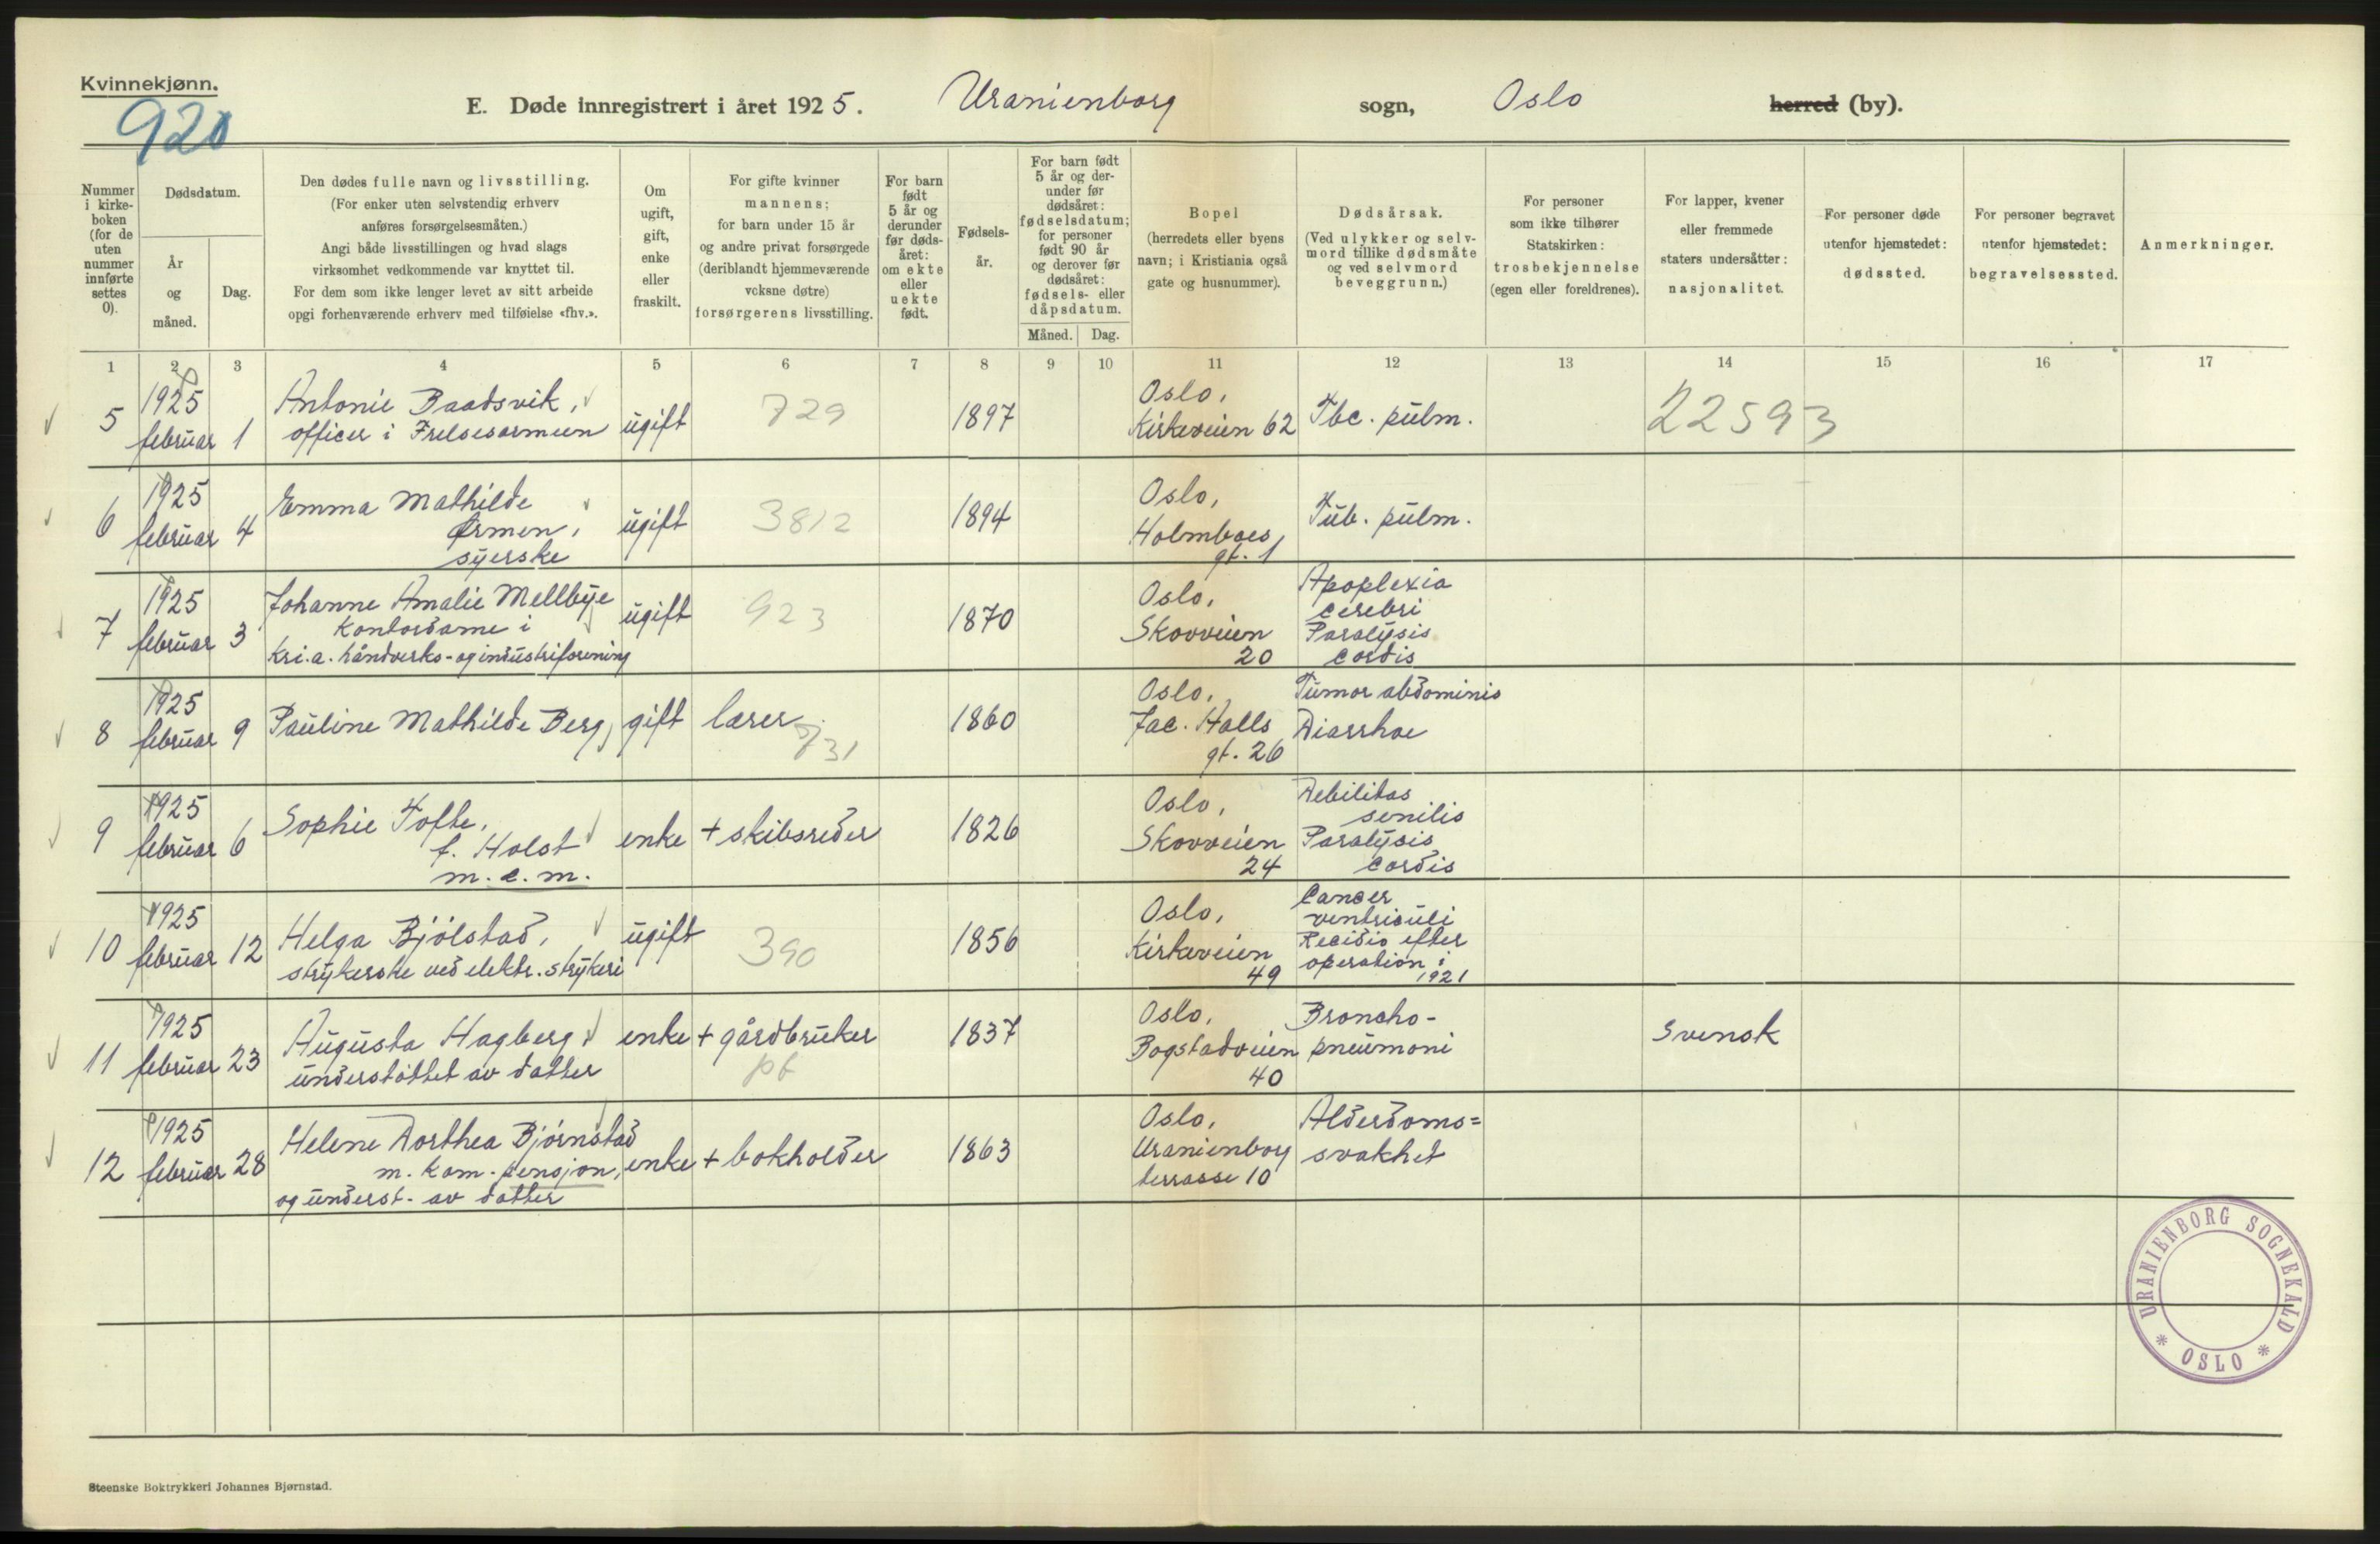 Kvinnekjønn.
920
E. Døde innregistrert i året 1925. Uranienborg sogn, Oslo herred (by).
Nummer i kirke-boken (for de uten nummer innførte settes 0).
Dødsdatum.
År og måned.
Dag.
Den dødes fulle navn og livsstilling.
(For enker uten selvstendig erhverv
anføres forsørgelsesmåten.)
Angi både livsstillingen og hvad slags
virksomhet vedkommende var knyttet til.
For dem som ikke lenger levet av sitt arbeide
opgi forhenværende erhverv med tilføielse «fhv.».
Om
ugift,
gift,
enke
eller
fraskilt.
For gifte kvinner
mannens;
for barn under 15 år
og andre privat forsørgede
(deriblandt hjemmeværende
voksne døtre)
forsørgerens livsstilling.
For barn
født
5 år og
derunder
før døds-
året:
om ekte
eller
uekte
født.
Fødsels-
år.
For barn født
5 år og der-
under før
dødsåret:
fødselsdatum;
for personer
født 90 år
og derover før
dødsåret:
fødsels- eller
dåpsdatum.
Måned. Dag.
Bopel
(herredets eller byens
navn; i Kristiania også
gate og husnummer).
Dødsårsak.
(Ved ulykker og selv-
mord tillike dødsmåte
og ved selvmord
beveggrunn.)
For personer
som ikke tilhører
Statskirken:
trosbekjennelse
(egen eller foreldrenes).
For lapper, kvener
eller fremmede
staters undersåtter:
nasjonalitet.
For personer døde
utenfor hjemstedet:
dødssted.
For personer begravet
utenfor hjemstedet:
begravelsessted.
Anmerkninger.
1 2 3 4 5 6 7 8 9 10 11 12 13 14 15 16 17
5 1925 februar 1
Antonie Baadsvik,
officer i Frelsesarmeen
ugift 729 1897
Oslo,
Kirkeveien 62
Tbc. pulm.
22593
6 1925 februar 4
Emma Mathilde
Ormen,
syerske
ugift 3812 1894
Oslo,
Holmboes
gt. 1
Tub. pulm.
7 1925 februar 3
Johanne Amalie Mellbye
Kontordame i
Kri.a. håndverks- og industriforening
ugift 923 1870
Oslo,
Skovveien
20
Apoplexia
cerebri
Paralysis
cordis
8 1925 februar 9
Pauline Mathilde Berg,
gift lærer 731 1860
Oslo,
Jac. Halls
gt. 26
Tumor abdominis
Diarrhoe
9 1925 februar 6
Sophie Tofte,
f. Holst
m. e. m.
enke + skibsreder 1826
Oslo,
Skovveien
24
Debilitas
senilis
Paralysis
cordis
10 1925 februar 12
Helga Bjölstad,
strykerske ved elektr. strykeri
ugift 390 1856
Oslo,
Kirkeveien
49
Cancer
ventriculi
Recidiv efter
operation i
1921
11 1925 februar 23
Augusta Hagberg
understöttet av datter
enke + gårdbruker
pt
1837
Oslo,
Bogstadveien
40
Broncho-
pneumoni
Svensk
12 1925 februar 28
Helene Dorthea Bjørnstad
m. kom. pensjon,
og underst. av datter
enke + bokholder 1863
Oslo,
Uranienborg
terrasse 10
Alderdoms=
svakhet
URANIENBORG SOGNEKALD * OSLO *
Steenske Boktrykkeri Johannes Bjørnstad.